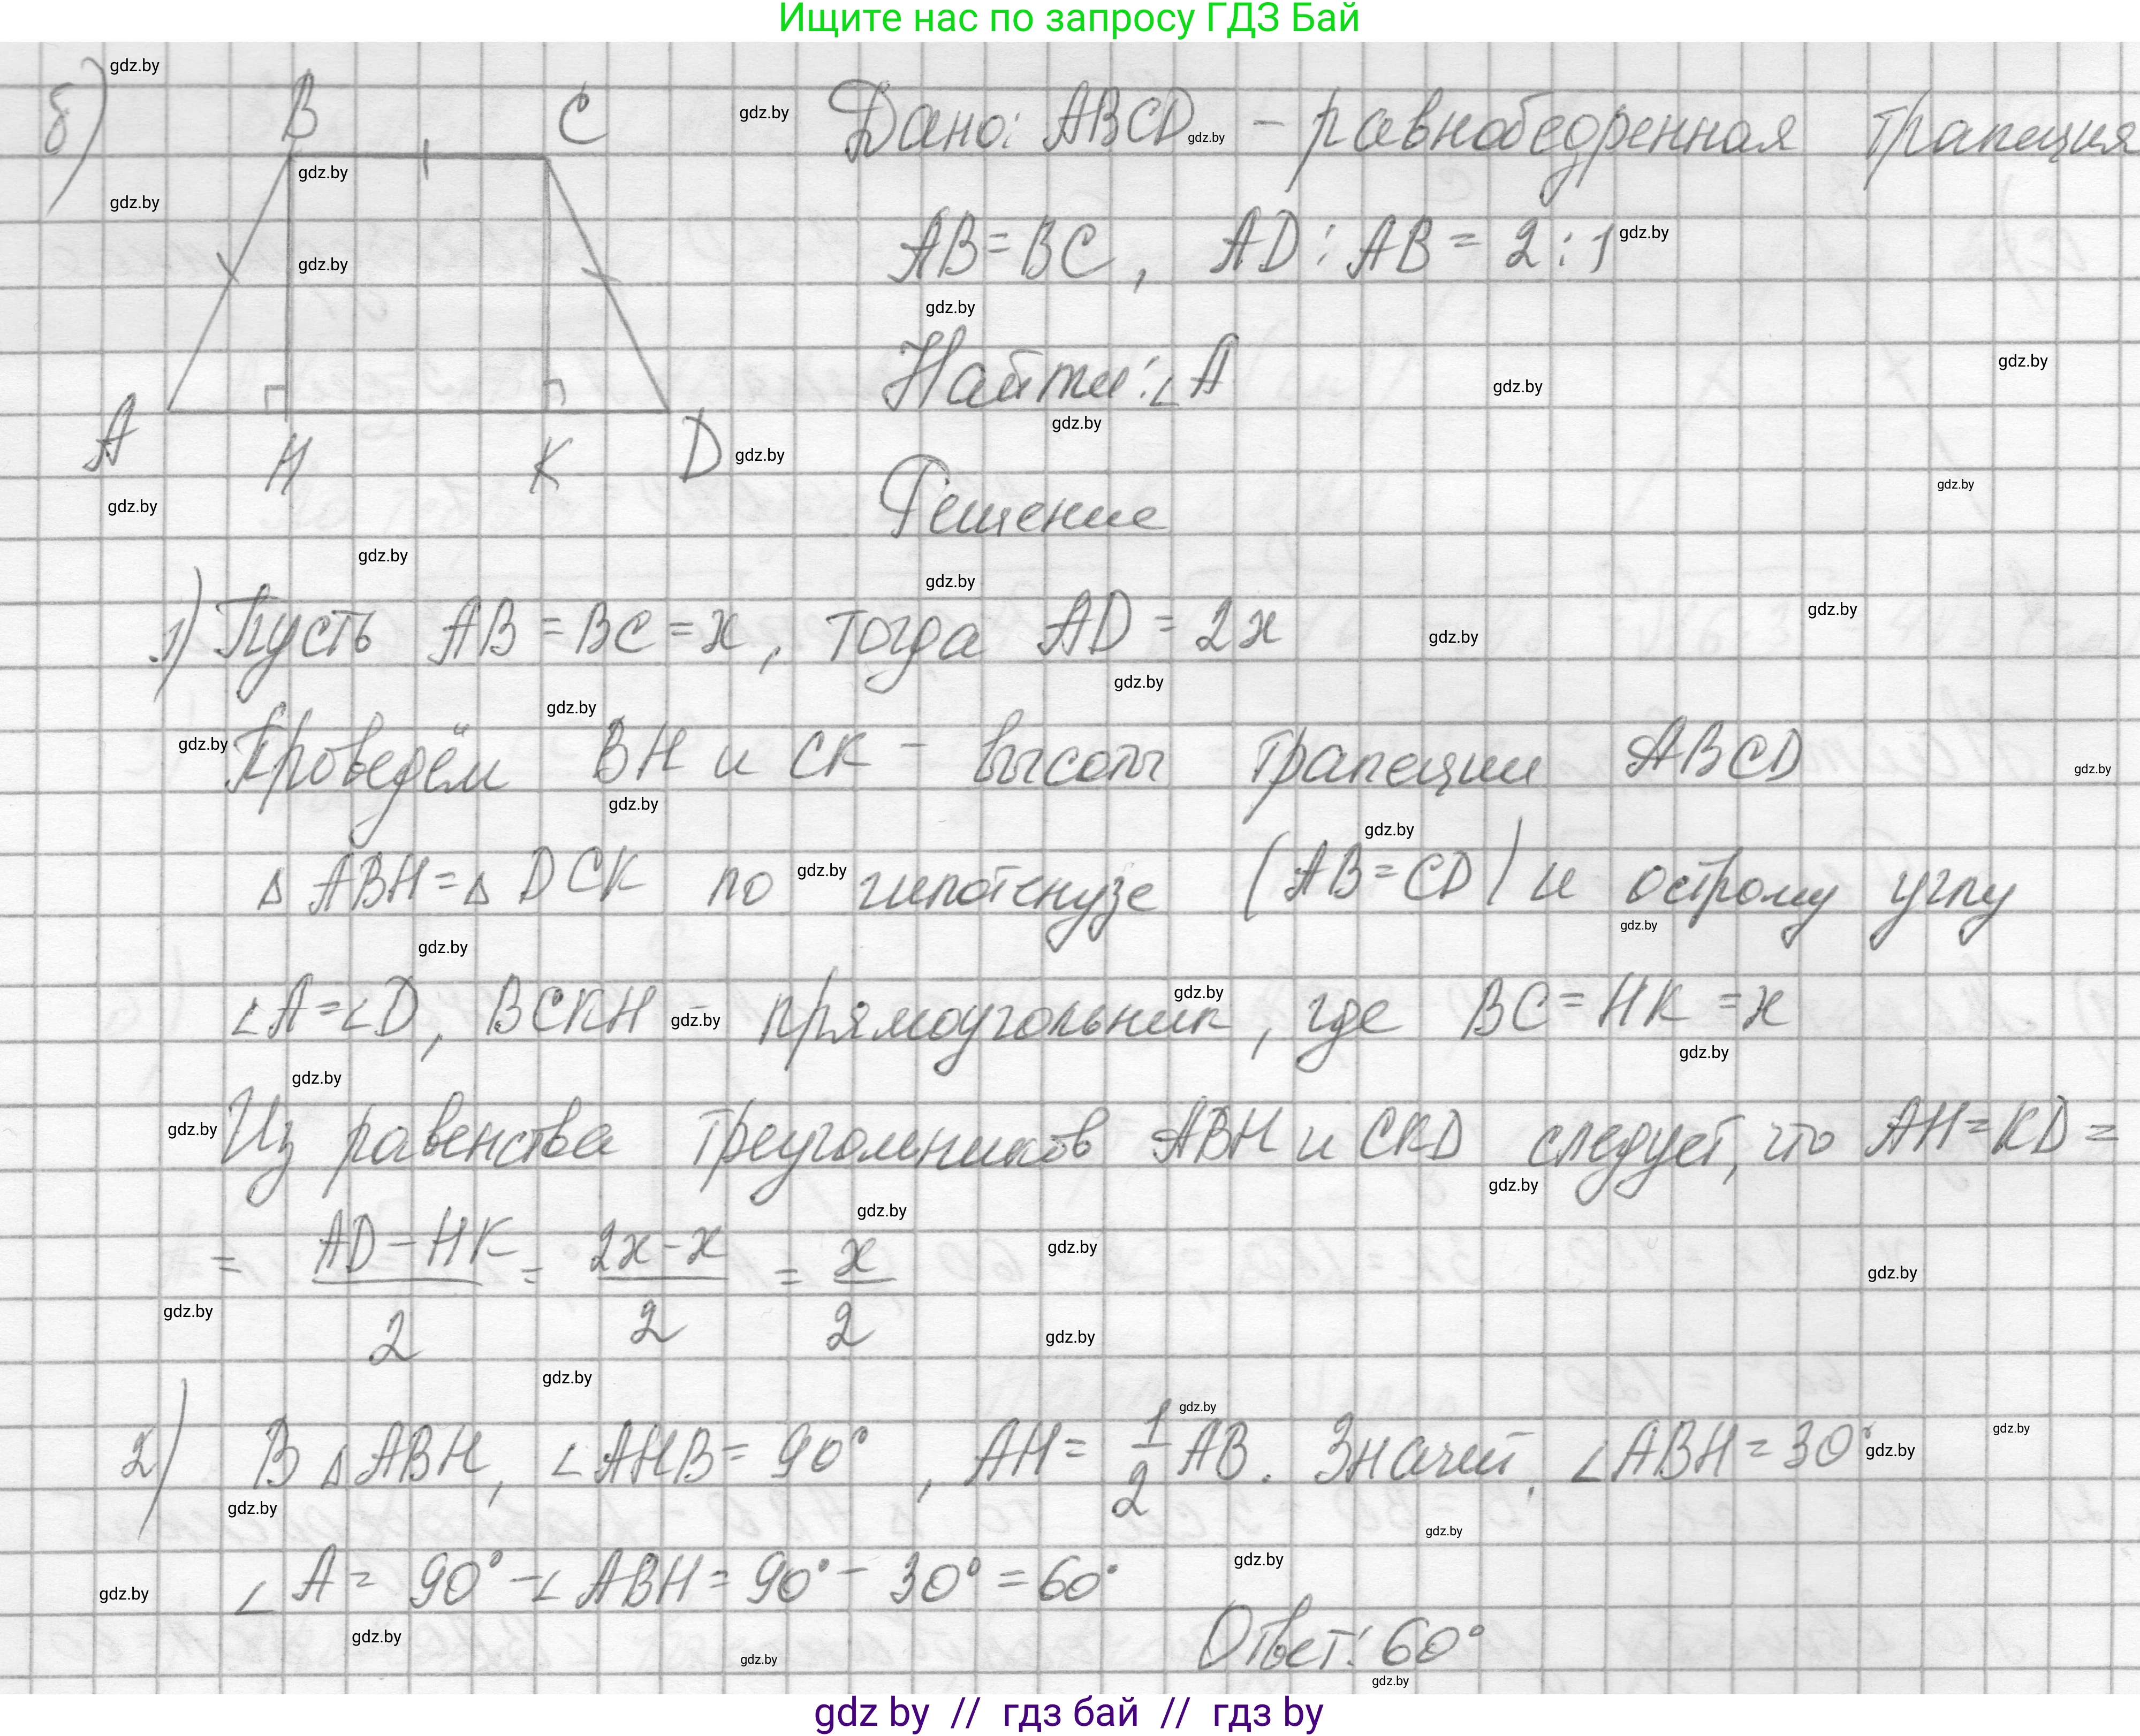 Ищите нас по запросу ГДЗ Бай
б)
B C
A H K D
Дано: ABCD – равнобедренная трапеция
AB = BC, AD : AB = 2 : 1
Найти: ∠A
Решение
1) Пусть AB = BC = x, тогда AD = 2x
Проведём BH и CK – высоты трапеции ABCD
△ ABH = △ DCK по гипотенузе (AB = CD) и острому углу
∠A = ∠D, BCKH – прямоугольник, где BC = HK = x
Из равенства треугольников ABH и CKD следует, что AH = KD =
= (AD – HK)/2 = (2x – x)/2 = x/2
2) В △ABH, ∠AHB = 90°, AH = 1/2 AB. Значит, ∠ABH = 30°
∠A = 90° – ∠ABH = 90° – 30° = 60°
Ответ: 60°
gdz.by
gdz by // гдз бай // гдз by